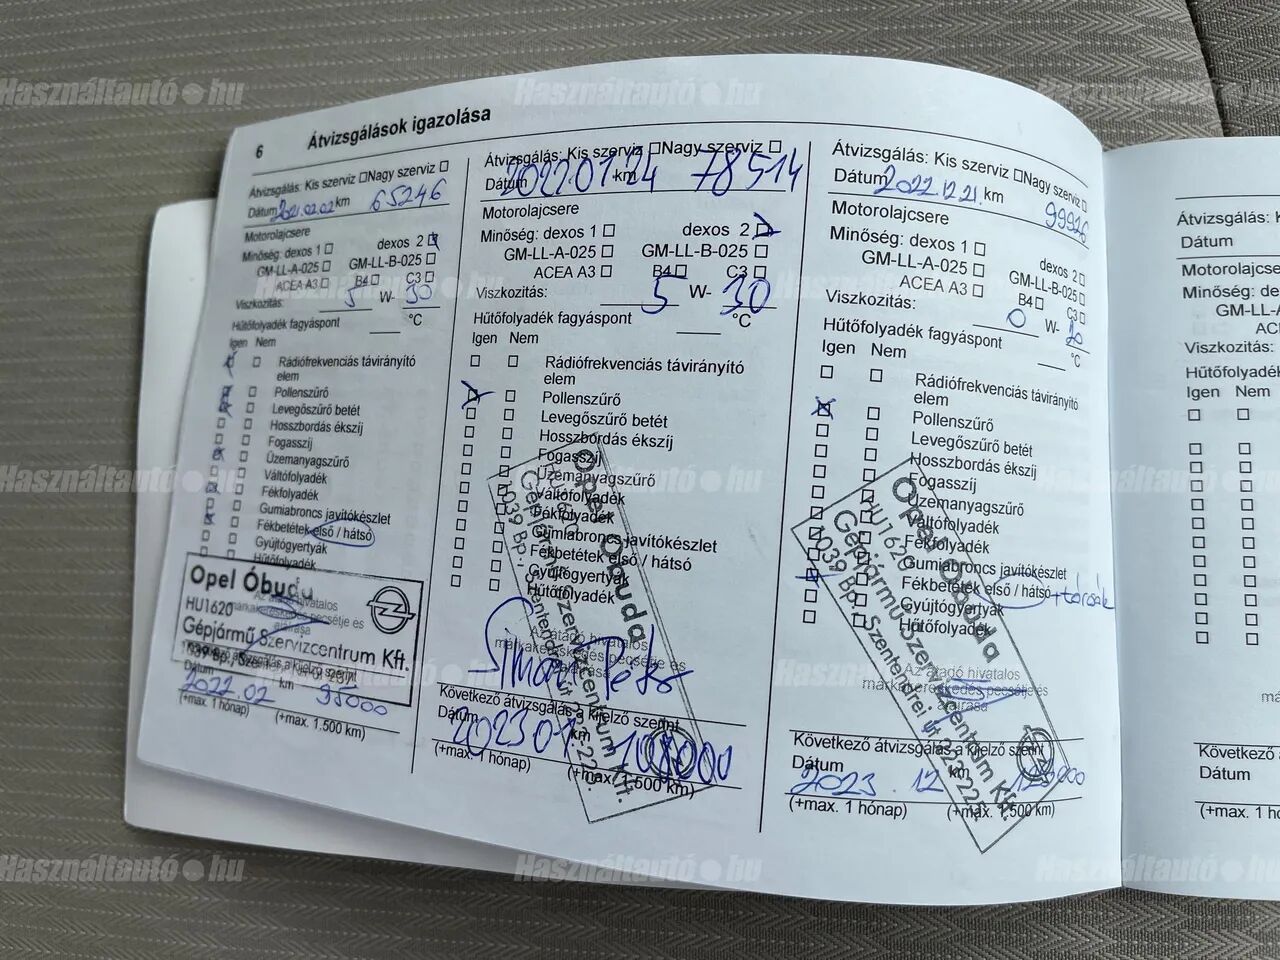 6 Átvizsgálások igazolása
Átvizsgálás: Kis szerviz Nagy szerviz
Dátum 2021.02.02 km 65246
Motorolajcsere
Minőség: dexos 1 dexos 2
GM-LL-A-025 GM-LL-B-025
ACEA A3 B4 C3
Viszkozitás: 5 W- 30
Hűtőfolyadék fagyáspont °C
Igen Nem
Rádiófrekvenciás távirányító
elem
Pollenszűrő
Levegőszűrő betét
Hosszbordás ékszíj
Fogasszíj
Üzemanyagszűrő
Váltófolyadék
Fékfolyadék
Gumiabroncs javítókészlet
Fékbetétek első / hátsó
Gyújtógyertyák
Hűtőfolyadék
Opel Óbuda
HU1620
Gépjármű Szervizcentrum Kft.
Dátum 2022.02 km 95000
(+max. 1 hónap) (+max. 1.500 km)
Átvizsgálás: Kis szerviz Nagy szerviz
Dátum 2022.01.24 km 78514
Motorolajcsere
Minőség: dexos 1 dexos 2
GM-LL-A-025 GM-LL-B-025
ACEA A3 B4 C3
Viszkozitás: 5 W- 30
Hűtőfolyadék fagyáspont °C
Igen Nem
Rádiófrekvenciás távirányító
elem
Pollenszűrő
Levegőszűrő betét
Hosszbordás ékszíj
Fogasszíj
Üzemanyagszűrő
Váltófolyadék
Fékfolyadék
Gumiabroncs javítókészlet
Fékbetétek első / hátsó
Gyújtógyertyák
Hűtőfolyadék
Opel Óbuda
Gépjármű Szervizcentrum Kft.
Az átadó hivatalos
márkakereskedés pecsétje és
aláírása
Következő átvizsgálás a kijelző szerint
Dátum 2023 01 km 108000
(+max. 1 hónap) (+max. 1.500 km)
Átvizsgálás: Kis szerviz Nagy szerviz
Dátum 2022.12.21. km 99926
Motorolajcsere
Minőség: dexos 1 dexos 2
GM-LL-A-025 GM-LL-B-025
ACEA A3 B4 C3
Viszkozitás: 0 W- 20
Hűtőfolyadék fagyáspont °C
Igen Nem
Rádiófrekvenciás távirányító
elem
Pollenszűrő
Levegőszűrő betét
Hosszbordás ékszíj
Fogasszíj
Üzemanyagszűrő
Váltófolyadék
Fékfolyadék
Gumiabroncs javítókészlet
Fékbetétek első / hátsó + tárcsák
Gyújtógyertyák
Hűtőfolyadék
Opel Óbuda
HU1620
Gépjármű Szervizcentrum Kft.
1039 Bp., Szentendrei út
Az átadó hivatalos
márkakereskedés pecsétje és
aláírása
Következő átvizsgálás a kijelző szerint
Dátum 2023. 12 km
(+max. 1 hónap) (+max. 1.500 km)
Dátum
Motorolajcse
Minőség: de
GM-LL-
Viszkozitás:
Igen Nem
Következő
Dátum
Használtautó.hu
Használtautó.hu
Használtautó.hu
Használtautó.hu
Használtautó.hu
Használtautó.hu